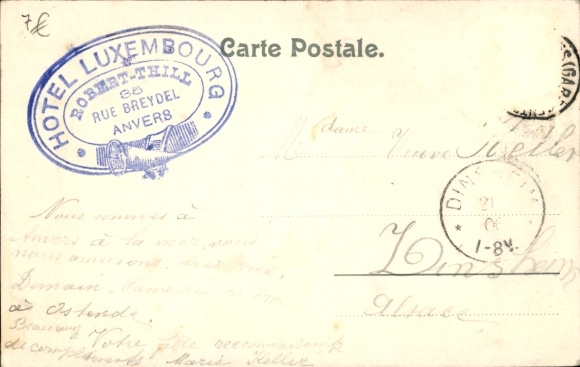 7€
Carte Postale.
HOTEL LUXEMBOURG
ROBERT-THILL
36
RUE BREYDEL
ANVERS
Madame
Veuve Keller
Dinsheim
Alsace
DINSHEIM
21
1-8V.
(GARE
Nous sommes à
Anvers à la mer, nous
nous amusons très bien.
Demain, Samedi on ira
à Ostende.
Beaucoup Votre fille reconnaissante
de compliments Marie Keller